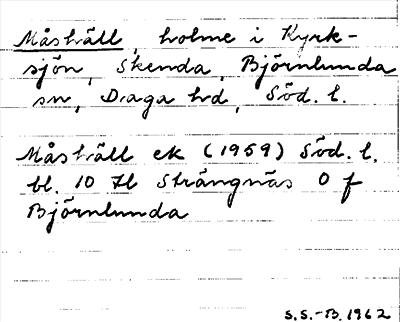 Måshäll, holme i Kyrk-
sjön, Skenda, Björnlunda
sn, Daga hd, Söd. l.
Måshäll ek (1959) Söd. l.
bl. 10 Hl Strängnäs O f
Björnlunda
S.S.-B. 1962